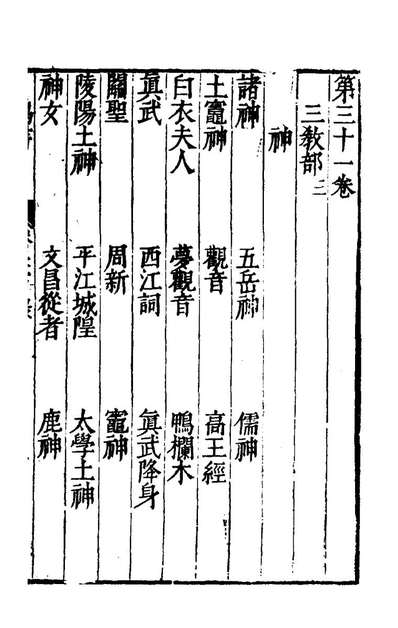 第三十一卷
三敎部二
神
諸神 五岳神 儒神
土竈神 觀音 高王經
白衣夫人 夢觀音 鴨欄木
眞武 西江詞 眞武降身
關聖 周新 竈神
陵陽土神 平江城隍 太學土神
神女 文昌從者 鹿神